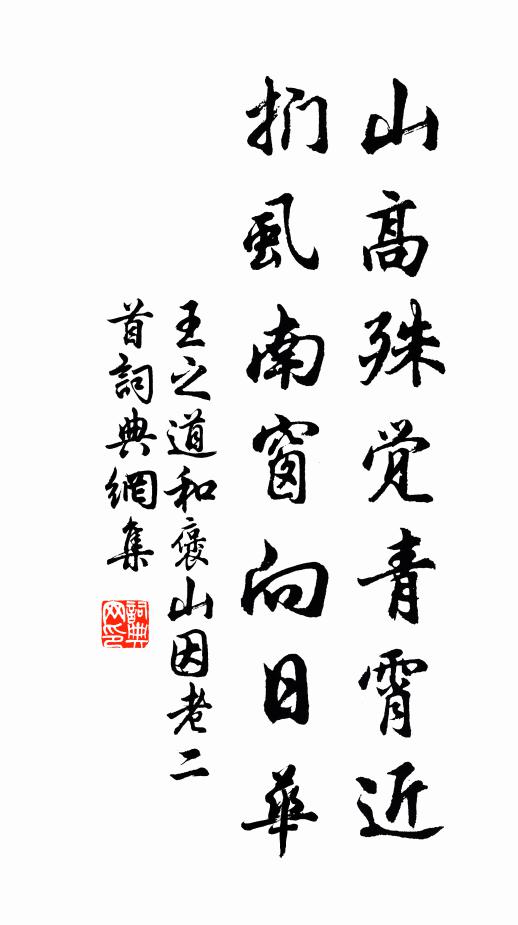 山高殊觉青霄近
扪虱南窗向日華
王之道和褒山因老二
首詞典網集
詞典網印